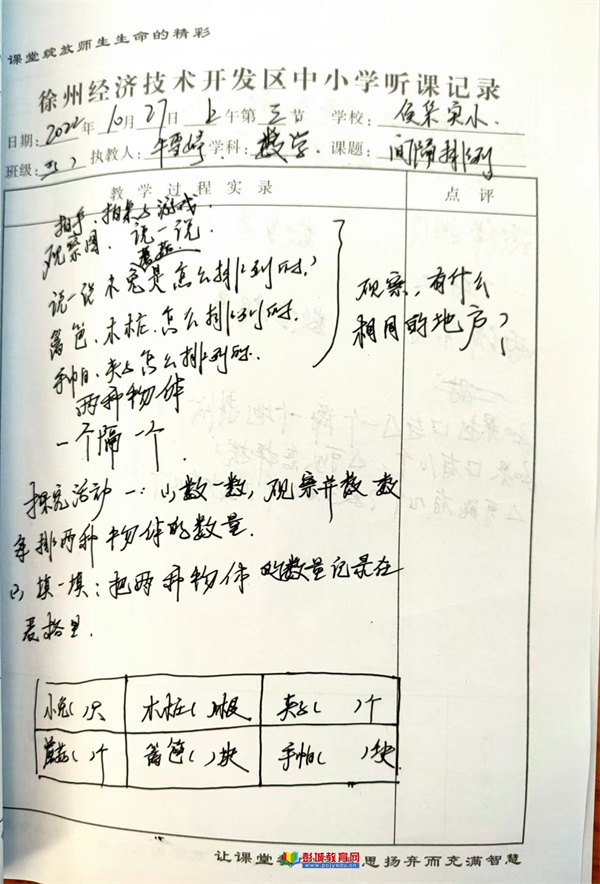 课堂绽放师生生命的精彩
徐州经济技术开发区中小学听课记录
日期：2022年10月27日上午第三节 学校：侯集实小
班级：三（） 执教人：牛雪婷 学科：数学 课题：间隔排列
教学过程实录 点评
拍手、拍桌子游戏
观察图、说一说
蘑菇
说一说木兔是怎么排列的？
篱笆、木桩、怎么排列的.
手帕、夹子怎么排列的.
观察，有什么
相同的地方？
两种物体
一个隔一个.
探究活动一：(1)数一数，观察并数数
每排两种物体的数量.
(2)填一填：把两种物体的数量记录在
表格里.
小兔( )只 木桩( )根 夹子( )个
蘑菇( )个 篱笆( )块 手帕( )块
彭城教育网
www.pcjyedu.cn
让课堂 思扬弃而充满智慧